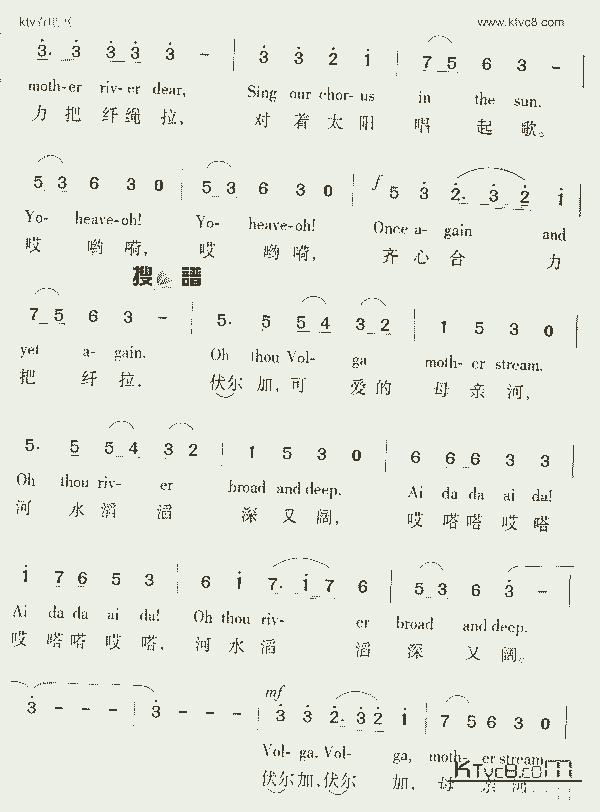 www.ktvc8.com
3. 3 3 3 3 - | 3 3 2 1 | 7 5 6 3 -
moth-er riv-er dear, Sing our chor-us in the sun.
力 把 纤 绳 拉, 对 着 太 阳 唱 起 歌。
5 3 6 3 0 | 5 3 6 3 0 | f 5 3 2. 3 2 1
Yo- heave-oh! Yo- heave-oh! Once a- gain and
哎 哟 嗬, 哎 哟 嗬, 齐 心 合 力
搜 譜
7 5 6 3 - | 5. 5 5 4 3 2 | 1 5 3 0
yet a- gain. Oh thou Vol- ga moth-er stream,
把 纤 拉, 伏尔 加,可 爱 的 母 亲 河,
5. 5 5 4 3 2 | 1 5 3 0 | 6 6 6 3 3
Oh thou riv- er broad and deep. Ai da da ai da!
河 水 滔 滔 深 又 阔, 哎 嗒嗒 哎 嗒
1 7 6 5 3 | 6 1 7. 1 7 6 | 5 3 6 3 -
Ai da da ai da! Oh thou riv- er broad and deep.
哎 嗒嗒 哎 嗒, 河 水 滔 滔 深 又 阔。
3 - - - | 3 - - - | mf 3 3 2. 3 2 1 | 7 5 6 3 0
Vol-ga, Vol- ga, moth- er stream,
伏尔加,伏尔 加, 母 亲 河,
KTvc8.com